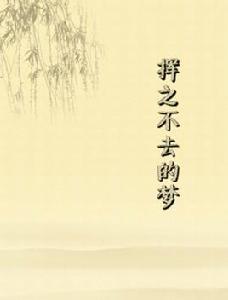 挥之不去的梦